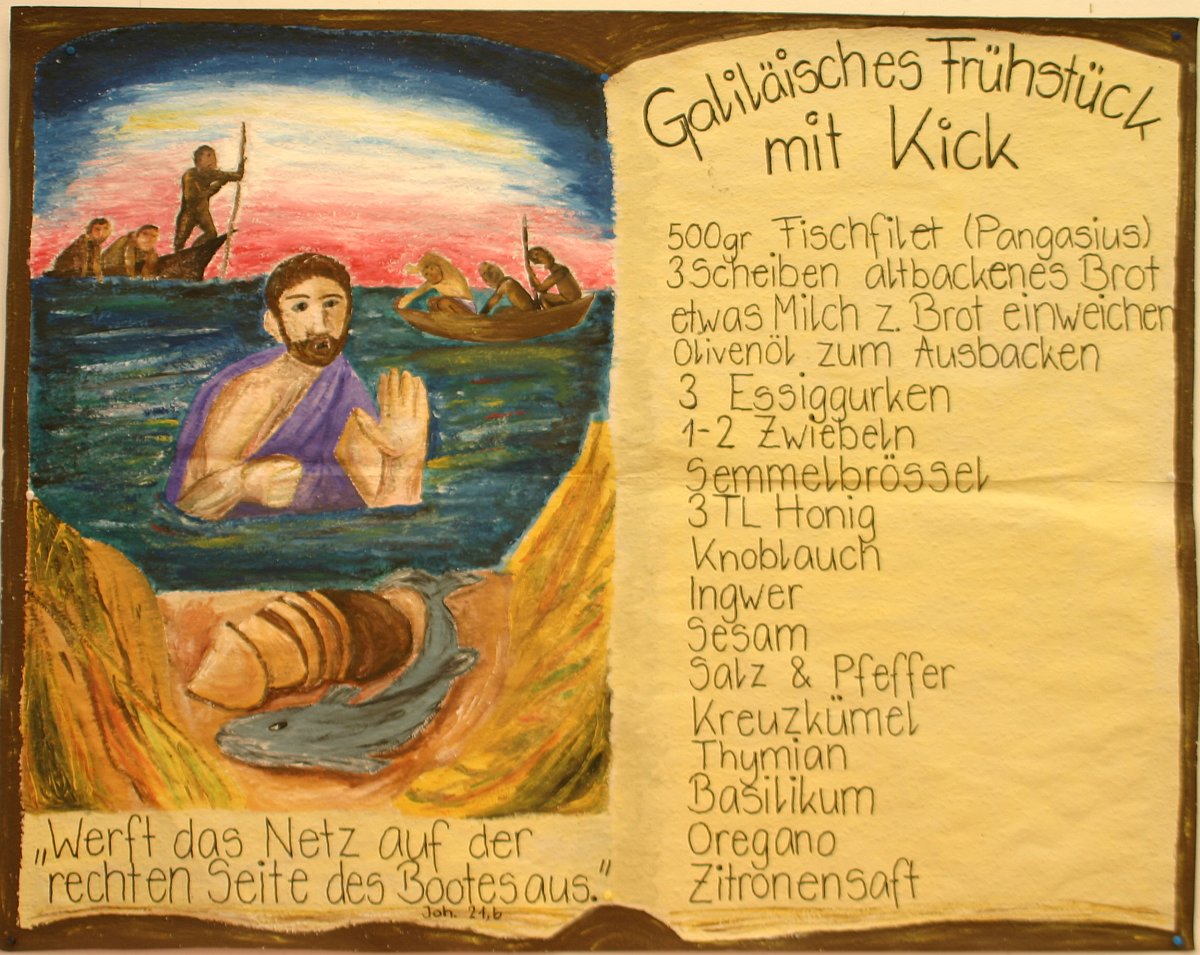 „Werft das Netz auf der
rechten Seite des Bootes aus."
Joh. 21,6
Galiläisches Frühstück
mit Kick
500gr Fischfilet (Pangasius)
3 Scheiben altbackenes Brot
etwas Milch z. Brot einweichen
Olivenöl zum Ausbacken
3 Essiggurken
1-2 Zwiebeln
Semmelbrössel
3 TL Honig
Knoblauch
Ingwer
Sesam
Salz & Pfeffer
Kreuzkümel
Thymian
Basilikum
Oregano
Zitronensaft